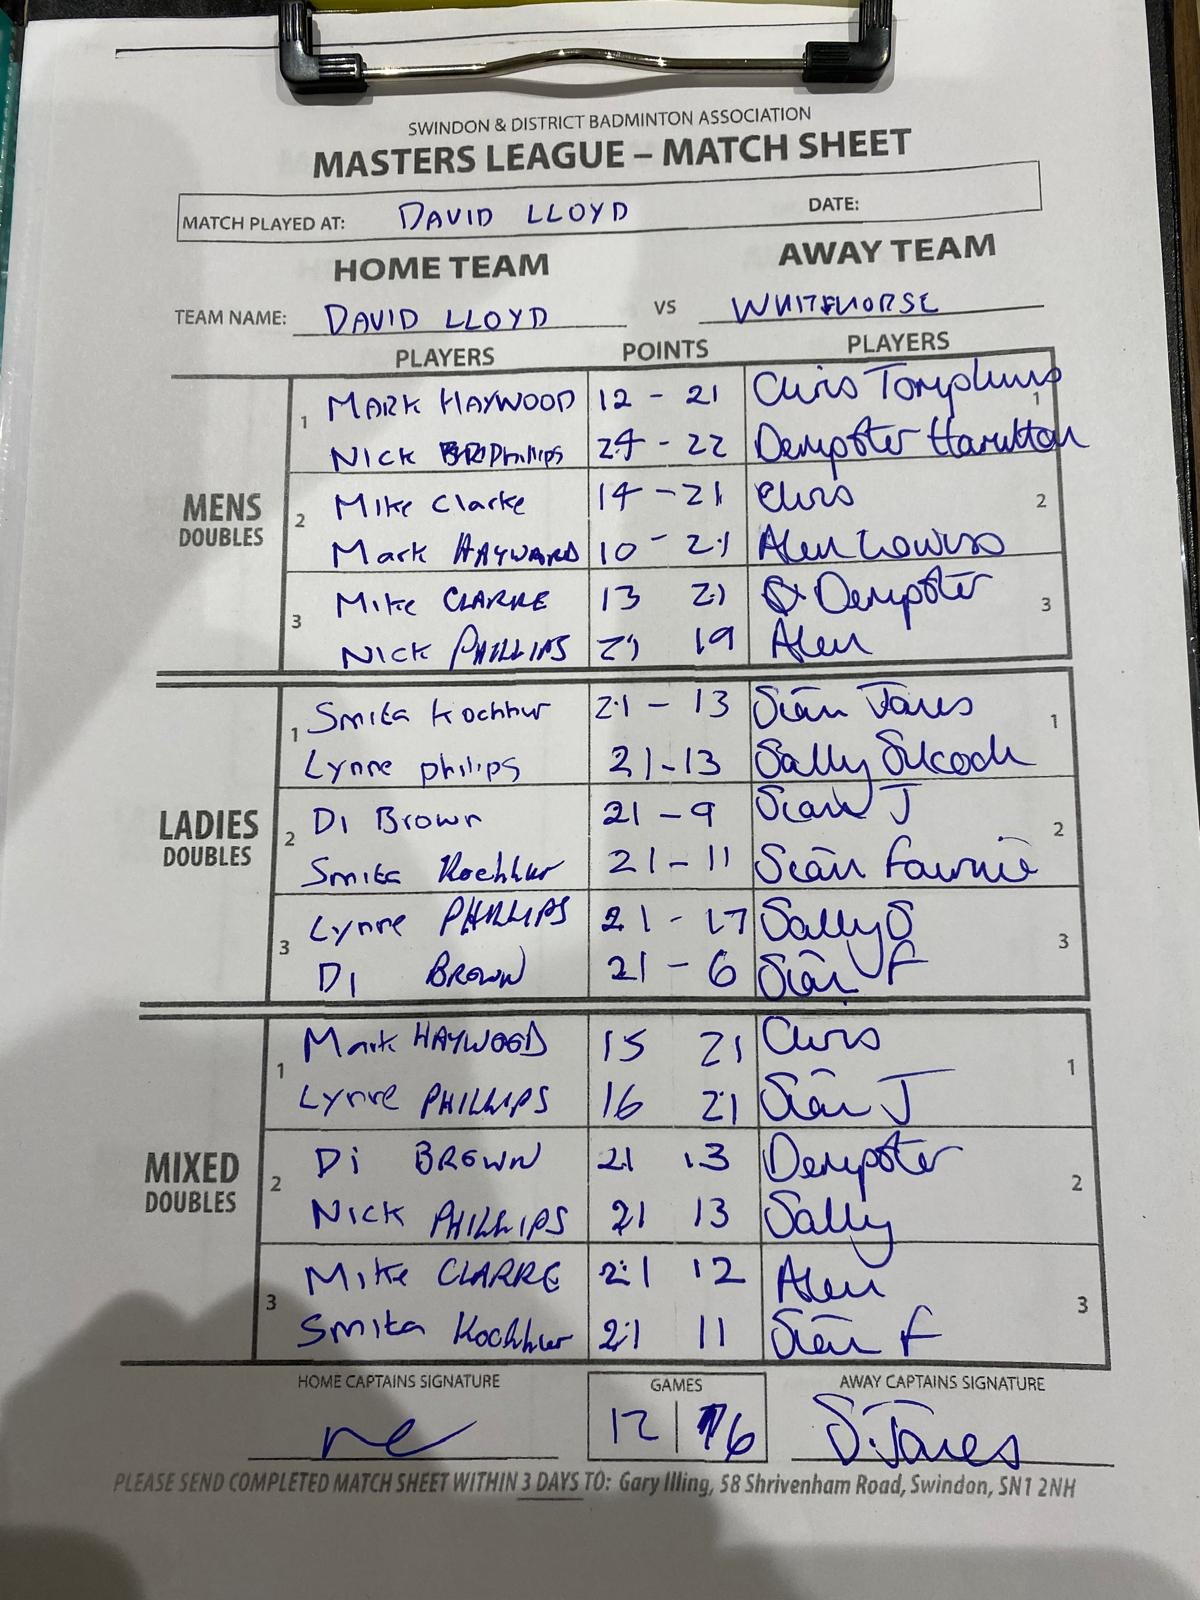 SWINDON & DISTRICT BADMINTON ASSOCIATION
MASTERS LEAGUE – MATCH SHEET
MATCH PLAYED AT: DAVID LLOYD DATE:
HOME TEAM AWAY TEAM
TEAM NAME: DAVID LLOYD VS WHITEHORSE
PLAYERS POINTS PLAYERS
MENS DOUBLES
1 MARK HAYWOOD 12 - 21 Chris Tompkins 1
NICK Phillips 24 - 22 Dempster Hamilton
2 Mike Clarke 14 - 21 Chris 2
Mark HAYWARD 10 - 21 Alen
3 Mike CLARKE 13 21 Dempster 3
NICK PHILLIPS 21 19 Alen
LADIES DOUBLES
1 Smita Kochhur 21 - 13 Siân Jones 1
Lynne philips 21-13 Sally Silcock
2 Di Brown 21 - 9 Sian J 2
Smita Kochhur 21 - 11 Siân
3 Lynne PHILLIPS 21 - 17 Sally S 3
DI BROWN 21 - 6 Siân F
MIXED DOUBLES
1 Mark HAYWOOD 15 21 Chris 1
Lynne PHILLIPS 16 21 Siân J
2 Di BROWN 21 13 Dempster 2
NICK PHILLIPS 21 13 Sally
3 Mike CLARKE 21 12 Alen 3
Smita Kochhur 21 11 Siân F
HOME CAPTAINS SIGNATURE GAMES AWAY CAPTAINS SIGNATURE
12 | 6 S. Jones
PLEASE SEND COMPLETED MATCH SHEET WITHIN 3 DAYS TO: Gary Illing, 58 Shrivenham Road, Swindon, SN1 2NH